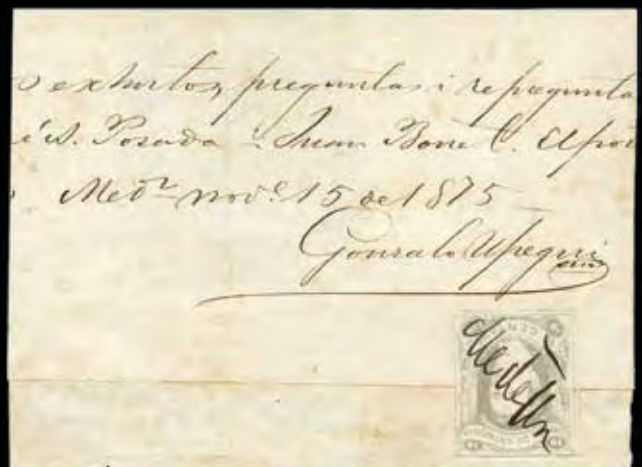 o exhortos, preguntas i repregunta
é S. Posada i Juan Bone C. El por
o. Medn nove 15 de 1875
Gonzalo Upegui
Medellin